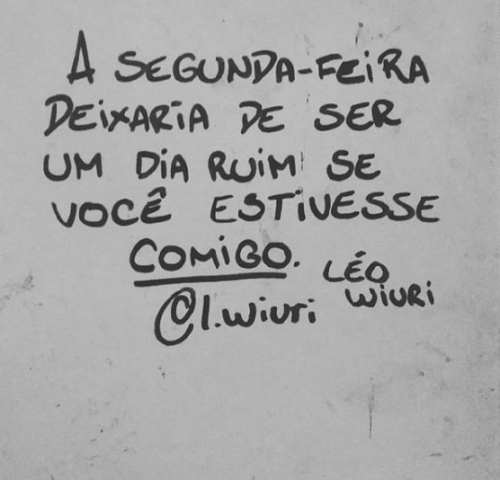 A SEGUNDA-FEiRA
DEiXARiA DE SER
UM DiA RUiM SE
VOCÊ ESTiVESSE
COMiGO.
LÉO
WiURi
@l.wiuri